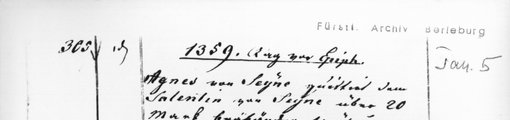 Fürstl. Archiv Berleburg
305
1359. Tag vor Epiph.
Jan. 5
Agnes von Seyne quittirt dem
Salentin von Seyne über 20
Mark